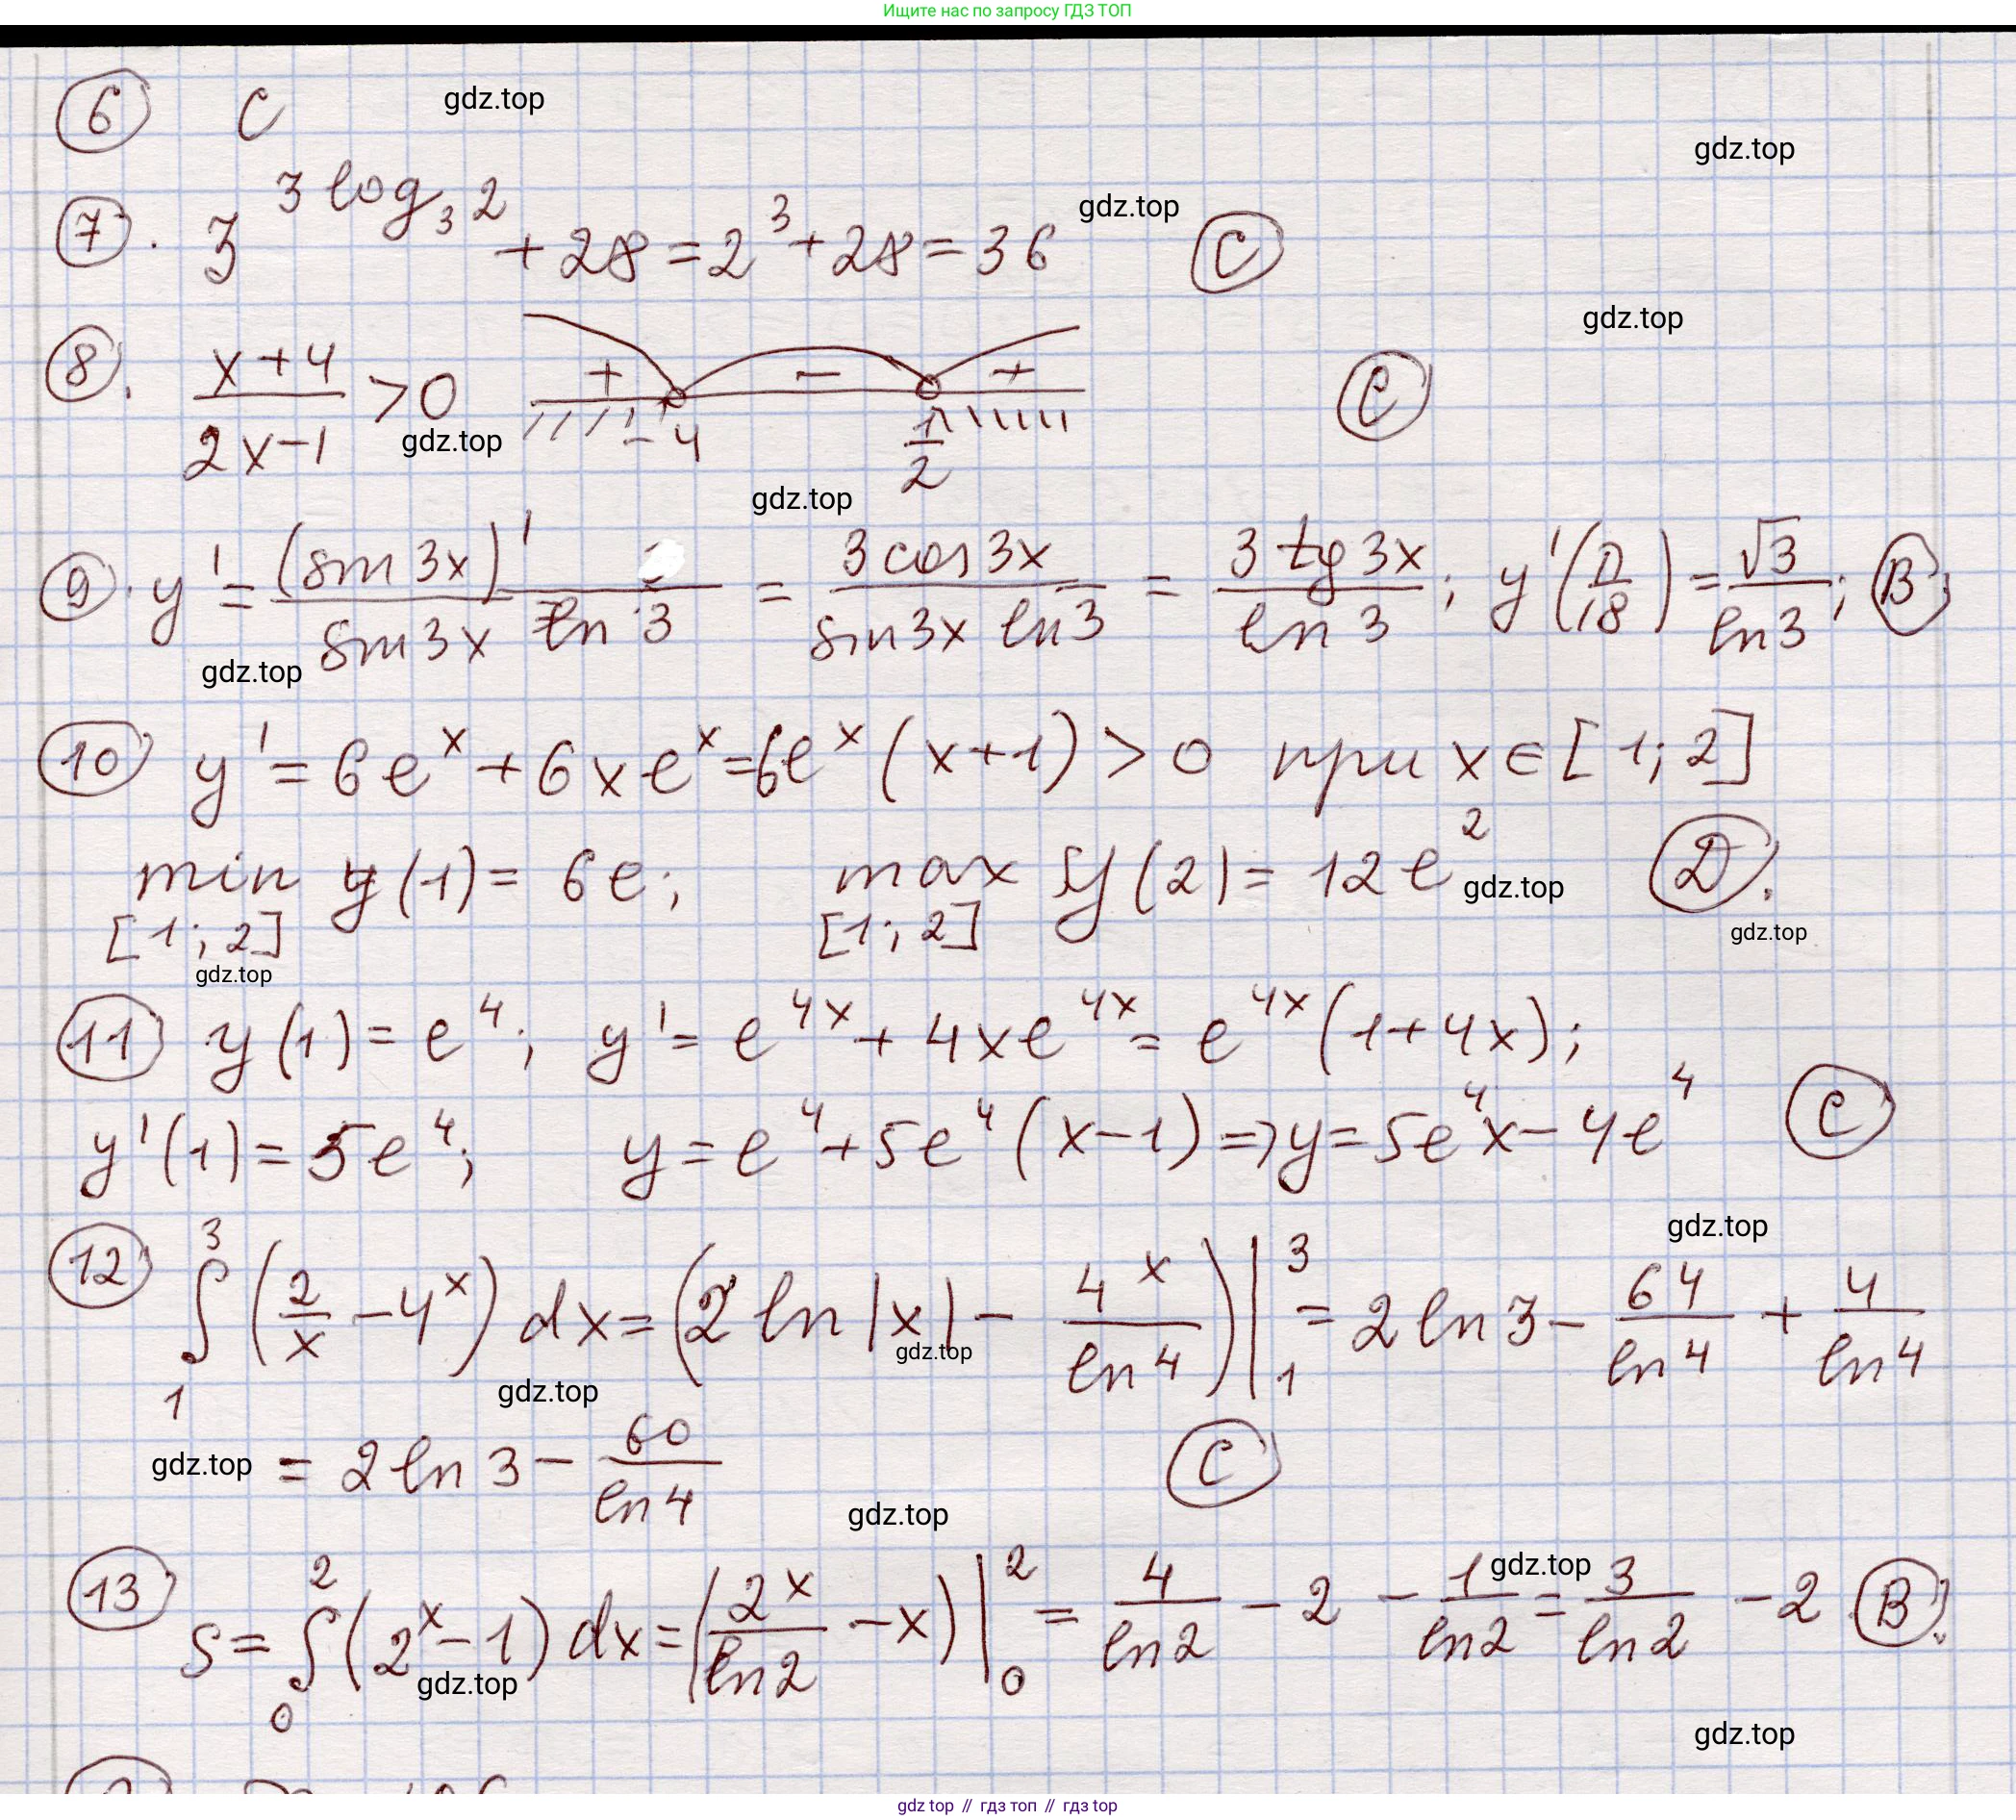 Ищите нас по запросу ГДЗ ТОП
6 C gdz.top
gdz.top
7. 3^(3 log₃ 2) + 28 = 2³ + 28 = 36 C gdz.top
gdz.top
8. (x+4)/(2x-1) > 0 + - + -4 1/2 C
gdz.top
gdz.top
9. y' = (sin 3x)'/(sin 3x ln 3) = (3 cos 3x)/(sin 3x ln 3) = (3 tg 3x)/(ln 3); y'(π/18) = √3/ln 3; B.
gdz.top
10 y' = 6e^x + 6xe^x = 6e^x (x+1) > 0 при x ∈ [1; 2]
min y(1) = 6e; max y(2) = 12e² D.
[1; 2] [1; 2]
gdz.top gdz.top gdz.top
11 y(1) = e⁴; y' = e^(4x) + 4xe^(4x) = e^(4x) (1+4x);
y'(1) = 5e⁴; y = e⁴ + 5e⁴ (x-1) => y = 5e⁴x - 4e⁴ C
gdz.top
12 ∫₁³ (2/x - 4^x) dx = (2 ln|x| - 4^x/ln 4)|₁³ = 2 ln 3 - 64/ln 4 + 4/ln 4
gdz.top
gdz.top
gdz.top = 2 ln 3 - 60/ln 4 C
gdz.top
gdz.top
13 S = ∫₀² (2^x - 1) dx = (2^x/ln 2 - x)|₀² = 4/ln 2 - 2 - 1/ln 2 = 3/ln 2 - 2 B.
gdz.top
gdz.top
gdz top // гдз топ // гдз top